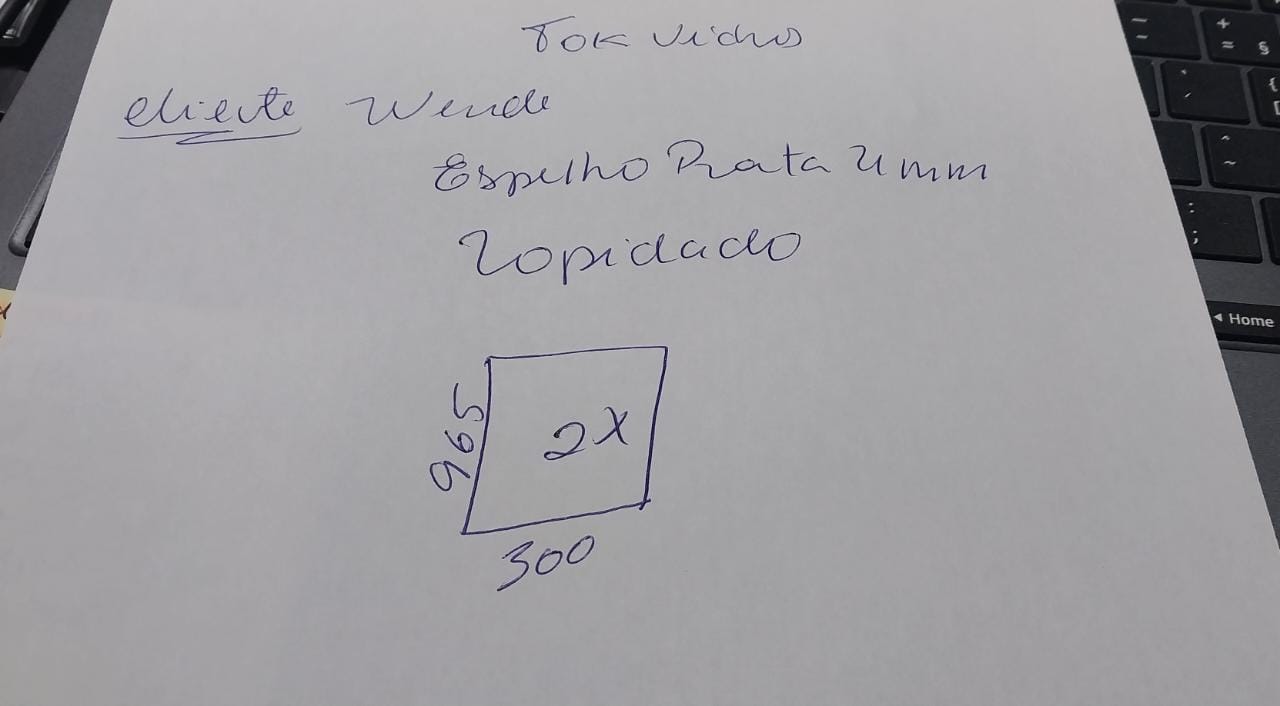 Tok Vidros
cliente Wende
Espelho Prata 4mm
Lopidado
965
2X
300
Home